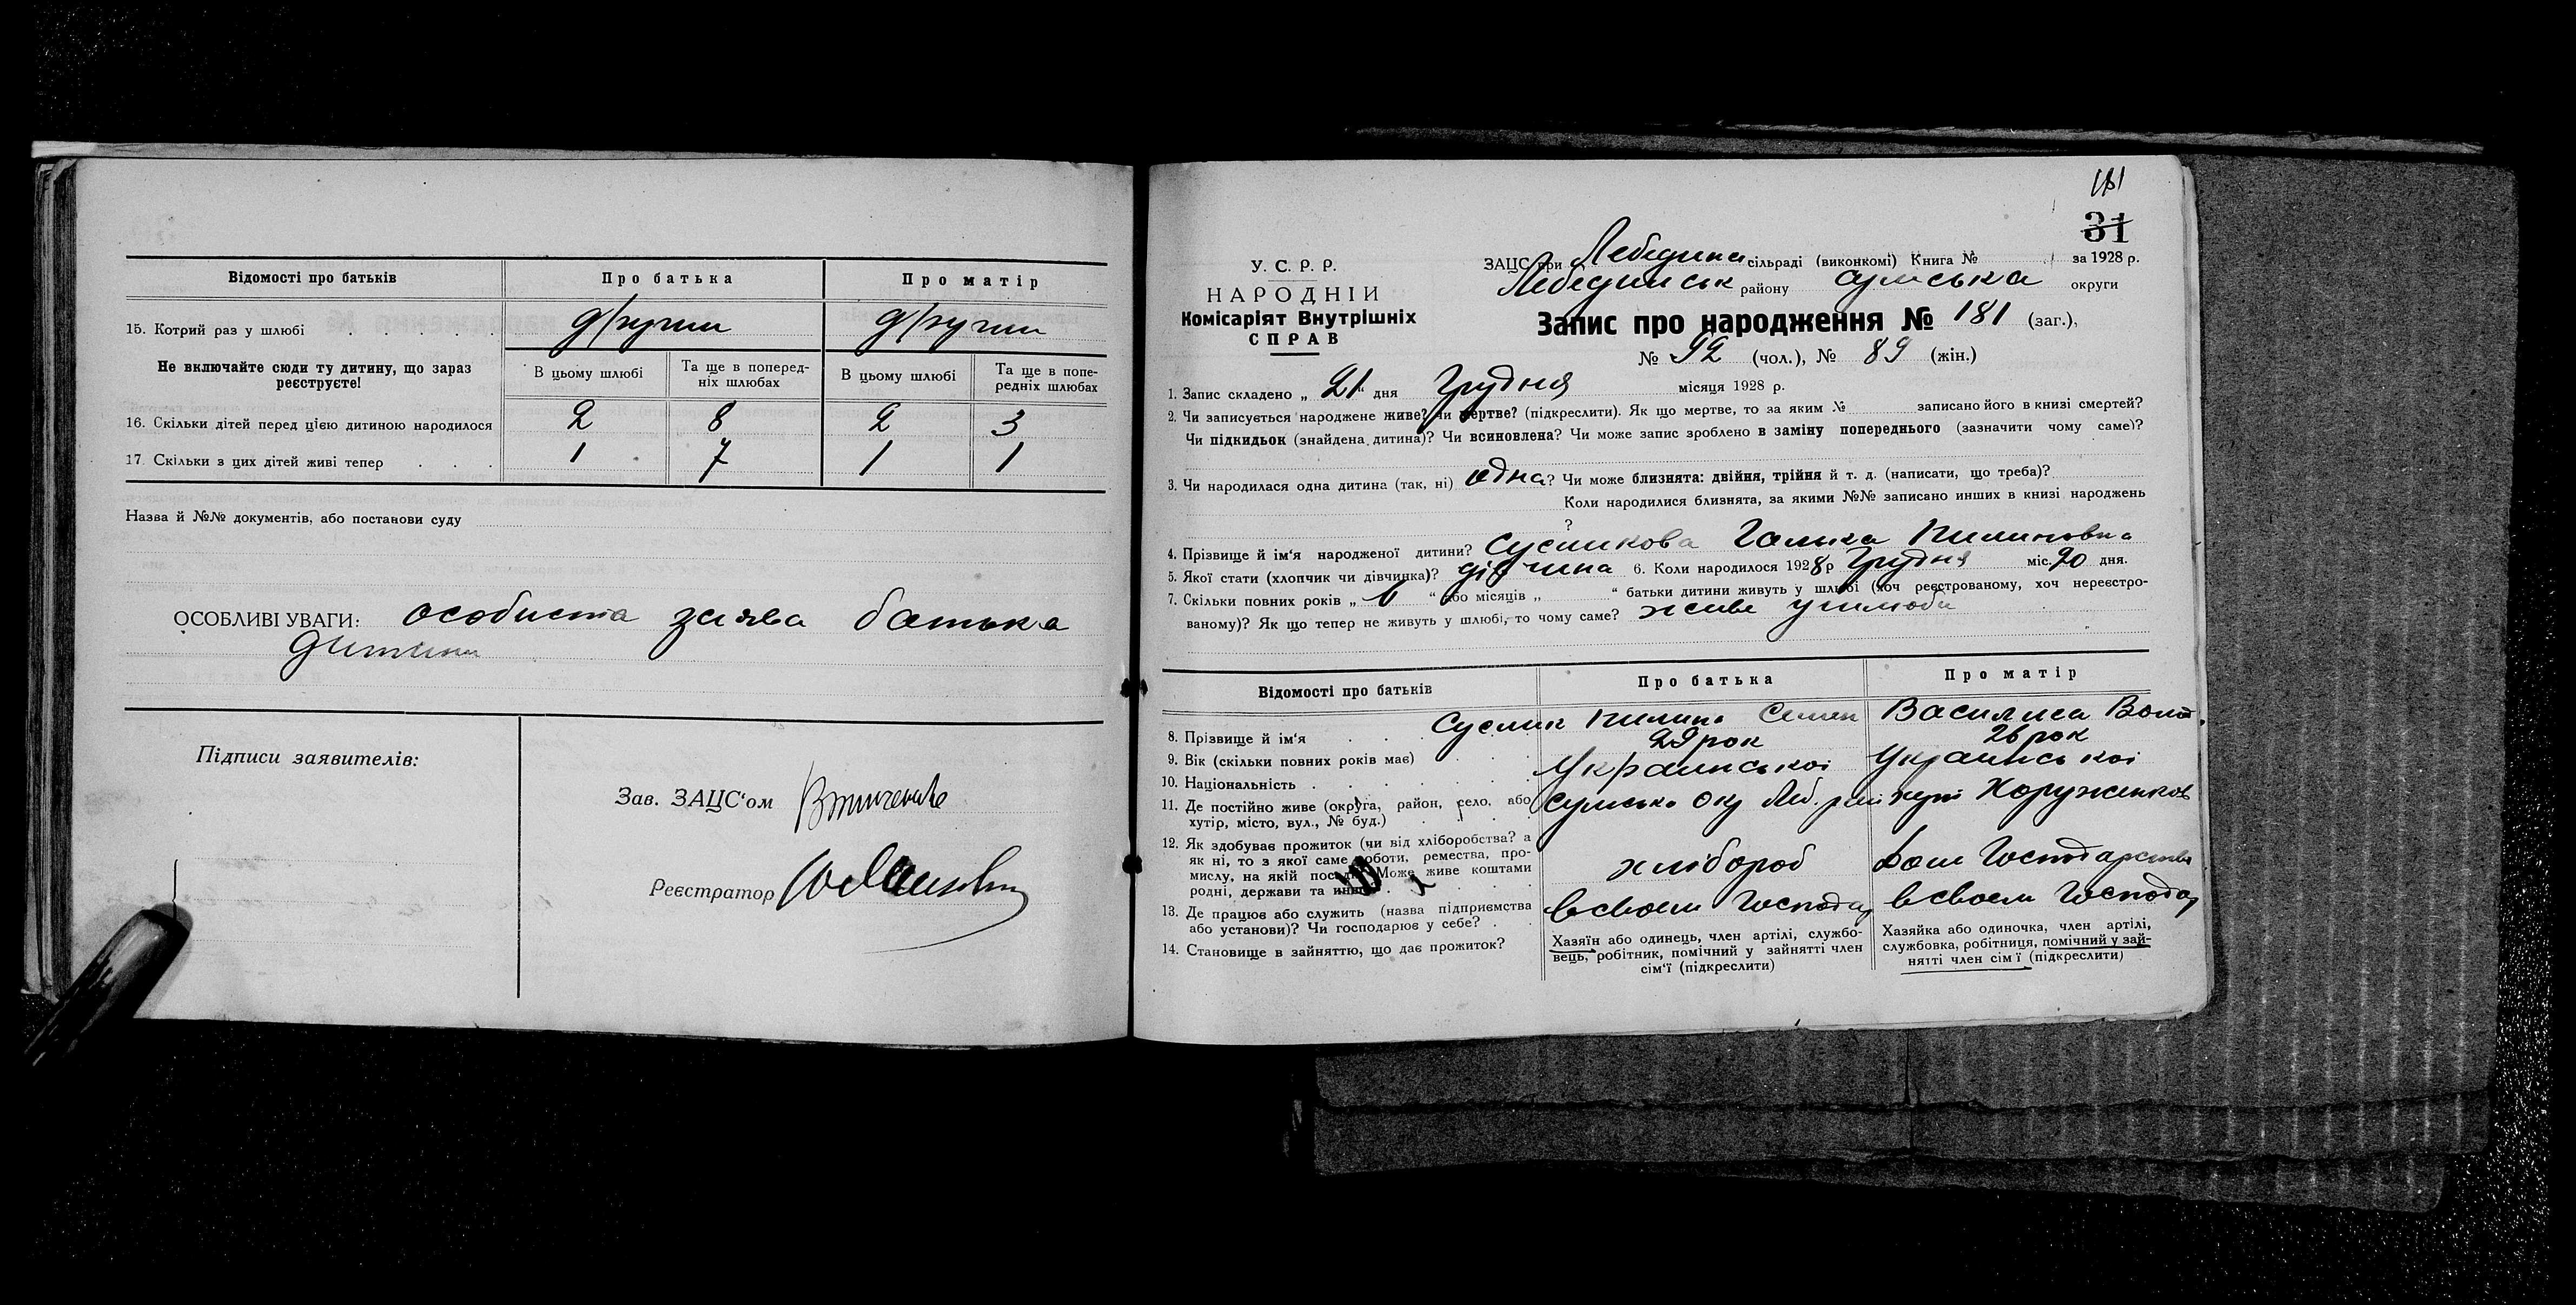 Відомості про батьків
Про батька
Про матір
15. Котрий раз у шлюбі
другий
другий
Не включайте сюди ту дитину, що зараз реєструєте!
В цьому шлюбі
Та ще в поперед-
ніх шлюбах
В цьому шлюбі
Та ще в попе-
редніх шлюбах
16. Скільки дітей перед цією дитиною народилося
2 8 2 3
17. Скільки з цих дітей живі тепер
1 7 1 1
Назва й №№ документів, або постанови суду
ОСОБЛИВІ УВАГИ: особиста заява батька
дитини
Підписи заявителів:
Зав. ЗАЦС'ом
Реєстратор
181
31
У. С. Р. Р.
НАРОДНІЙ
Комісаріят Внутрішніх
СПРАВ
ЗАЦС при Лебедина сільраді (виконкомі) Книга № за 1928 р.
Лебединськ району сумська округи
Запис про народження № 181 (заг.),
№ 92 (чол.), № 89 (жін.)
1. Запис складено „ 21 “ дня Грудня місяця 1928 р.
2. Чи записується народжене живе? чи мертве? (підкреслити). Як що мертве, то за яким № записано його в книзі смертей?
Чи підкидьок (знайдена дитина)? Чи всиновлена? Чи може запис зроблено в заміну попереднього (зазначити чому саме)?
3. Чи народилася одна дитина (так, ні) одна? Чи може близнята: двійня, трійня й т. д. (написати, що треба)?
Коли народилися близнята, за якими №№ записано инших в книзі народжень
?
4. Прізвище й ім'я народженої дитини? Сусликова Галька Пилиповна
5. Якої стати (хлопчик чи дівчинка)? дівчина 6. Коли народилося 1928 р Грудня міс. 20 дня.
7. Скільки повних років „ “ або місяців „ “ батьки дитини живуть у шлюбі (хоч реєстрованому, хоч нереєстро-
ваному)? Як що тепер не живуть у шлюбі, то чому саме? живе ушлюби
Відомості про батьків
Про батька
Про матір
8. Прізвище й ім'я
Суслик Пилип Семен
Василиса
9. Вік (скільки повних років має)
29 рок
26 рок
10. Національність
Украинськоі
Украинськоі
11. Де постійно живе (округа, район, село, або
хутір, місто, вул., № буд.)
сумсько Окр Леб. рай хут Хоруженков
12. Як здобуває прожиток (чи від хліборобства? а
як ні, то з якої саме роботи, ремества, про-
мислу, на якій посаді? Може живе коштами
родні, держави та инше
хлібороб
Дом Господарство
13. Де працює або служить (назва підприємства
або установи)? Чи господарює у себе?
всвоем Господар
всвоем Господар
14. Становище в зайняттю, що дає прожиток?
Хазяїн або одинець, член артілі, службо-
вець, робітник, помічний у зайнятті член
сім'ї (підкреслити)
Хазяйка або одиночка, член артілі,
службовка, робітниця, помічний у зай-
нятті член сім'ї (підкреслити)